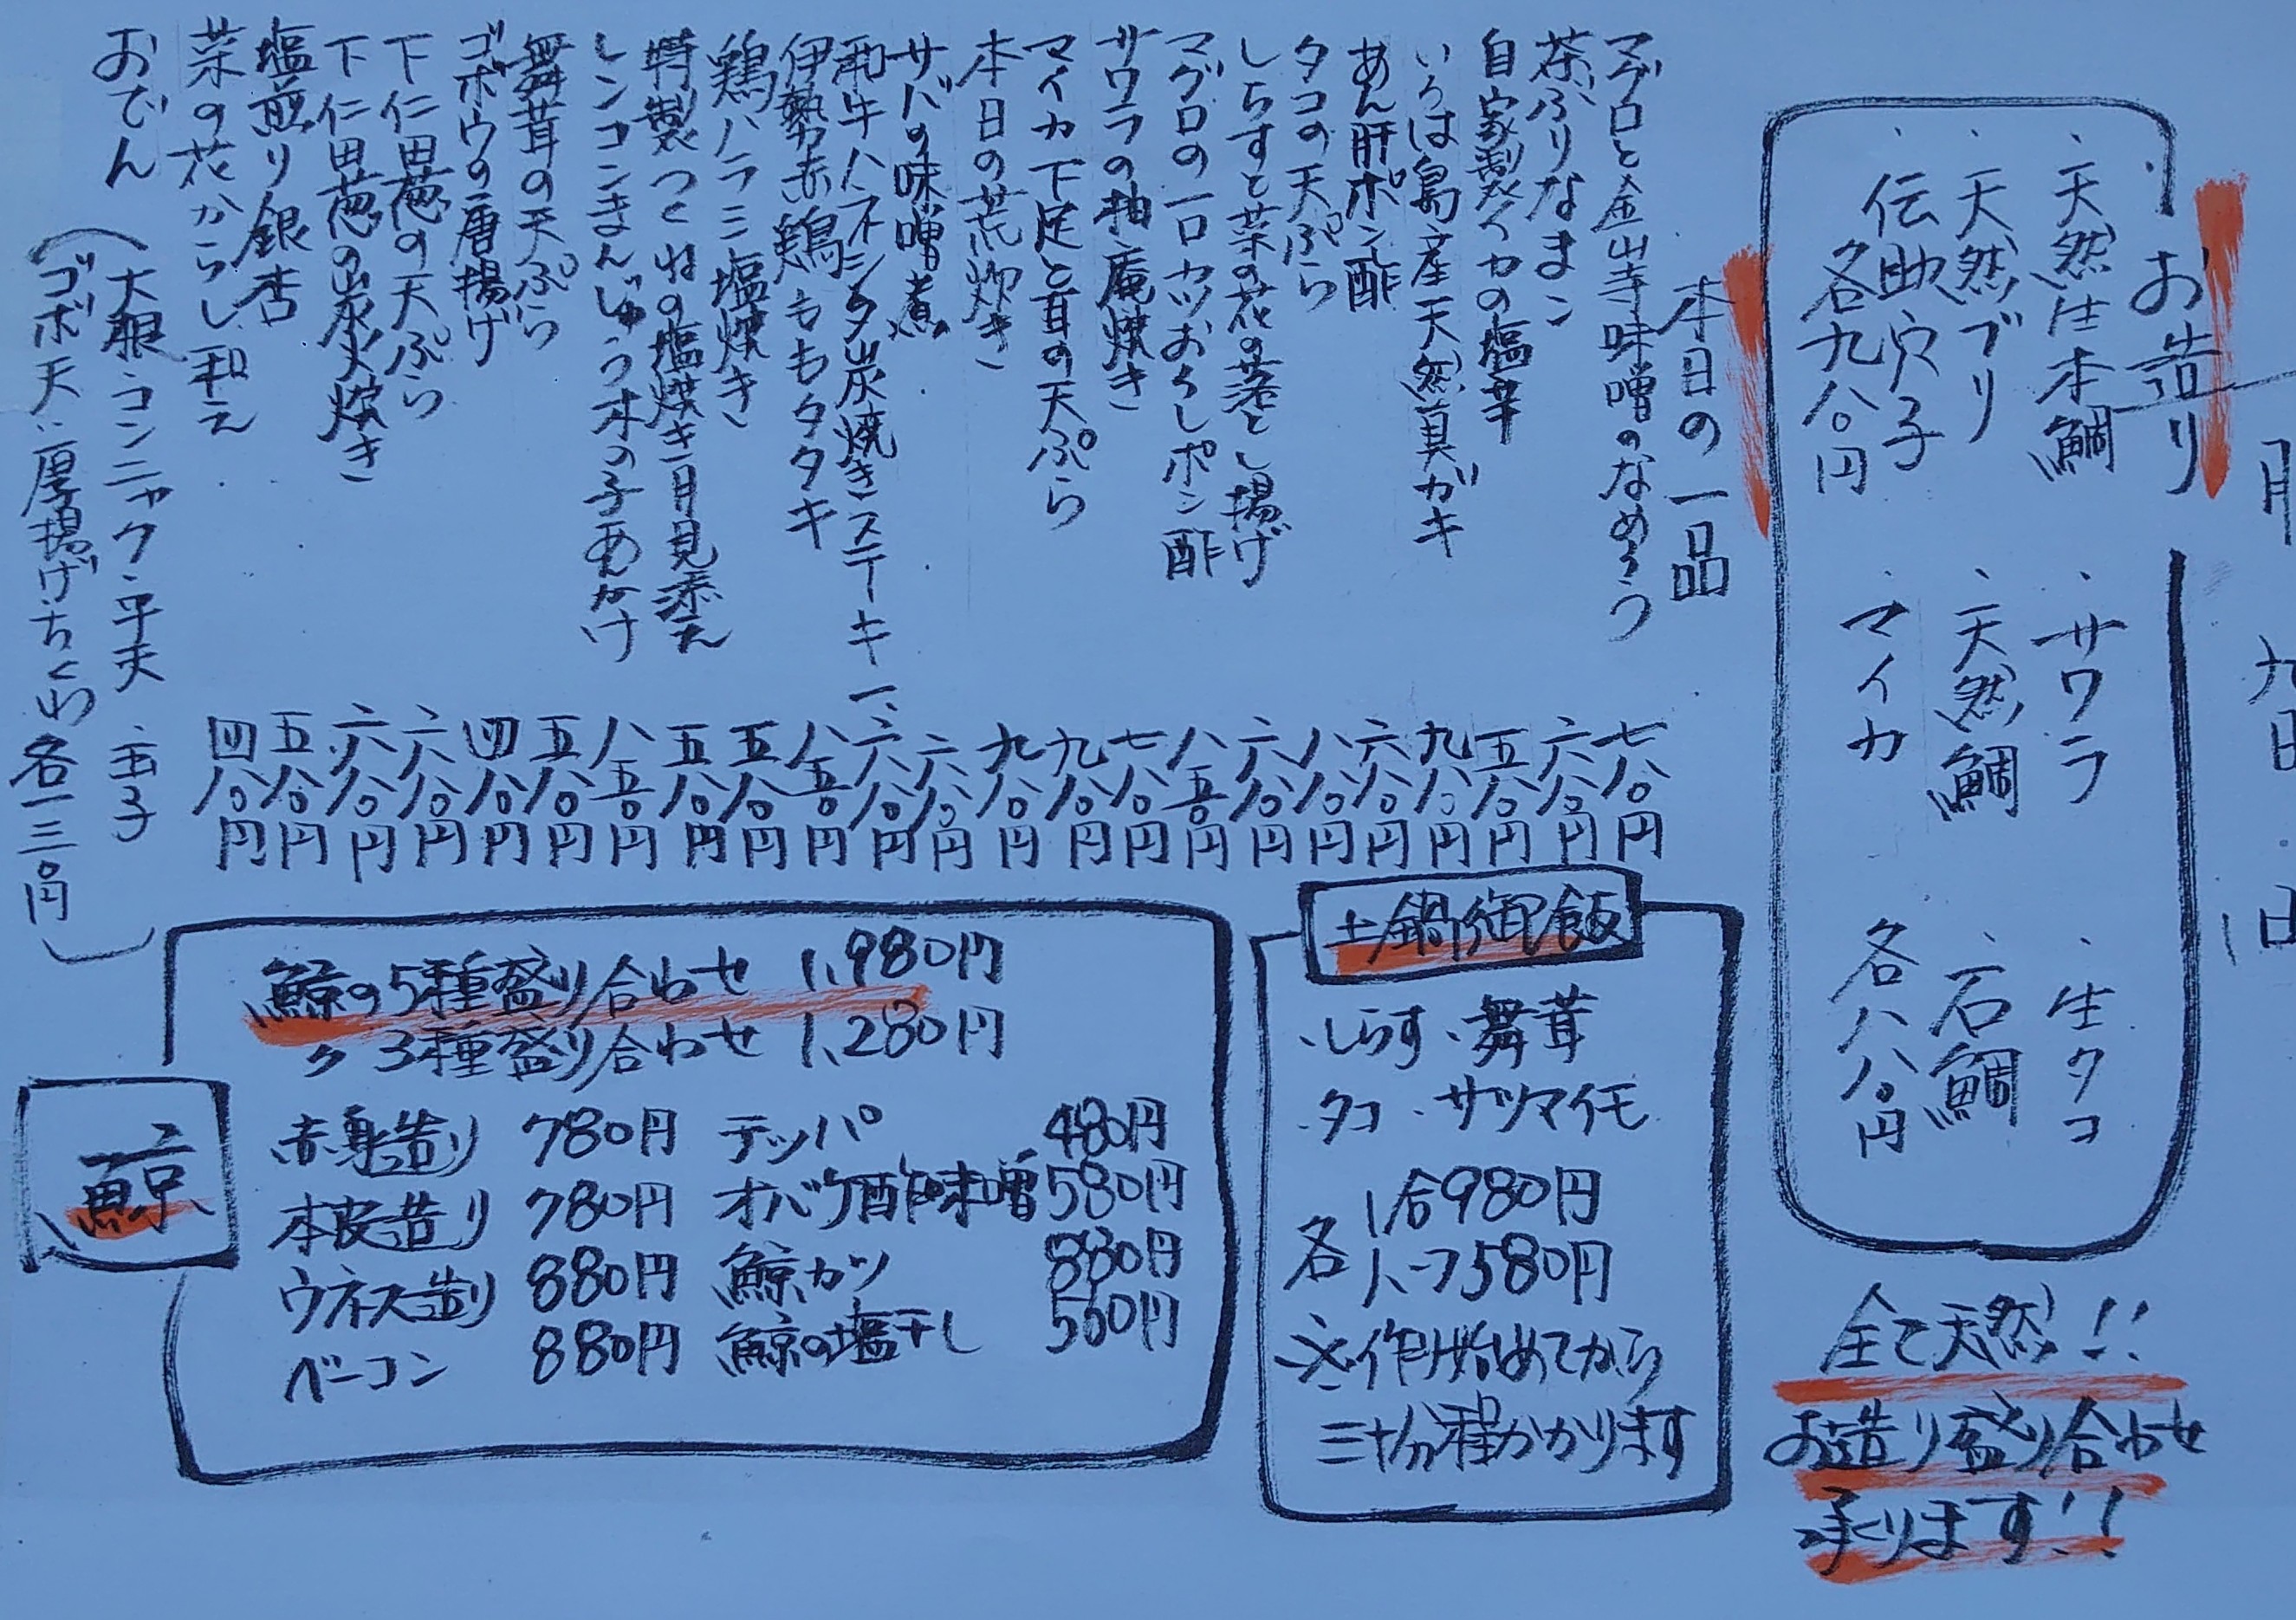 月 九日 日
お造り
・天然生本鯛 ・サワラ ・生タコ
・天然ブリ ・天然鯛 ・石鯛
・伝助穴子 ・マイカ
各九八〇円 各八八〇円
全て天然!!
お造り盛り合わせ
承ります!!
本日の一品
マグロと金山寺味噌のなめろう 七八〇円
茶ぶりなまこ 六八〇円
自家製イカの塩辛 五八〇円
いろは島産天然真ガキ 九八〇円
あん肝ポン酢 六八〇円
タコの天ぷら 八八〇円
しらすと菜の花の落とし揚げ 六八〇円
マグロの一口カツおろしポン酢 八五〇円
サワラの柚庵焼き 七八〇円
マイカ下足と耳の天ぷら 九八〇円
本日の荒炊き 九八〇円
サバの味噌煮 六八〇円
和牛ハネシタ炭焼きステーキ 一、六八〇円
伊勢赤鶏ももタタキ 八五〇円
鶏ハラミ塩焼き 五八〇円
特製つくねの塩焼き月見添え 五八〇円
レンコンまんじゅう木の子あんかけ 八五〇円
舞茸の天ぷら 五八〇円
ゴボウの唐揚げ 四八〇円
下仁田葱の天ぷら 六八〇円
下仁田葱の炭火焼き 六八〇円
塩煎り銀杏 五八〇円
菜の花からし和え 四八〇円
おでん (大根・コンニャク・平天・玉子
ゴボ天・厚揚げ・ちくわ 各一三〇円)
土鍋御飯
・しらす ・舞茸
・タコ ・サツマイモ
各 1合980円
ハーフ580円
※作り始めてから
三十分程かかります
鯨
鯨の5種盛り合わせ 1,980円
〃 3種盛り合わせ 1,280円
赤身造り 780円 テッパ 480円
本皮造り 780円 オバケ酢味噌 580円
ウネス造り 880円 鯨カツ 880円
ベーコン 880円 鯨の塩干し 560円